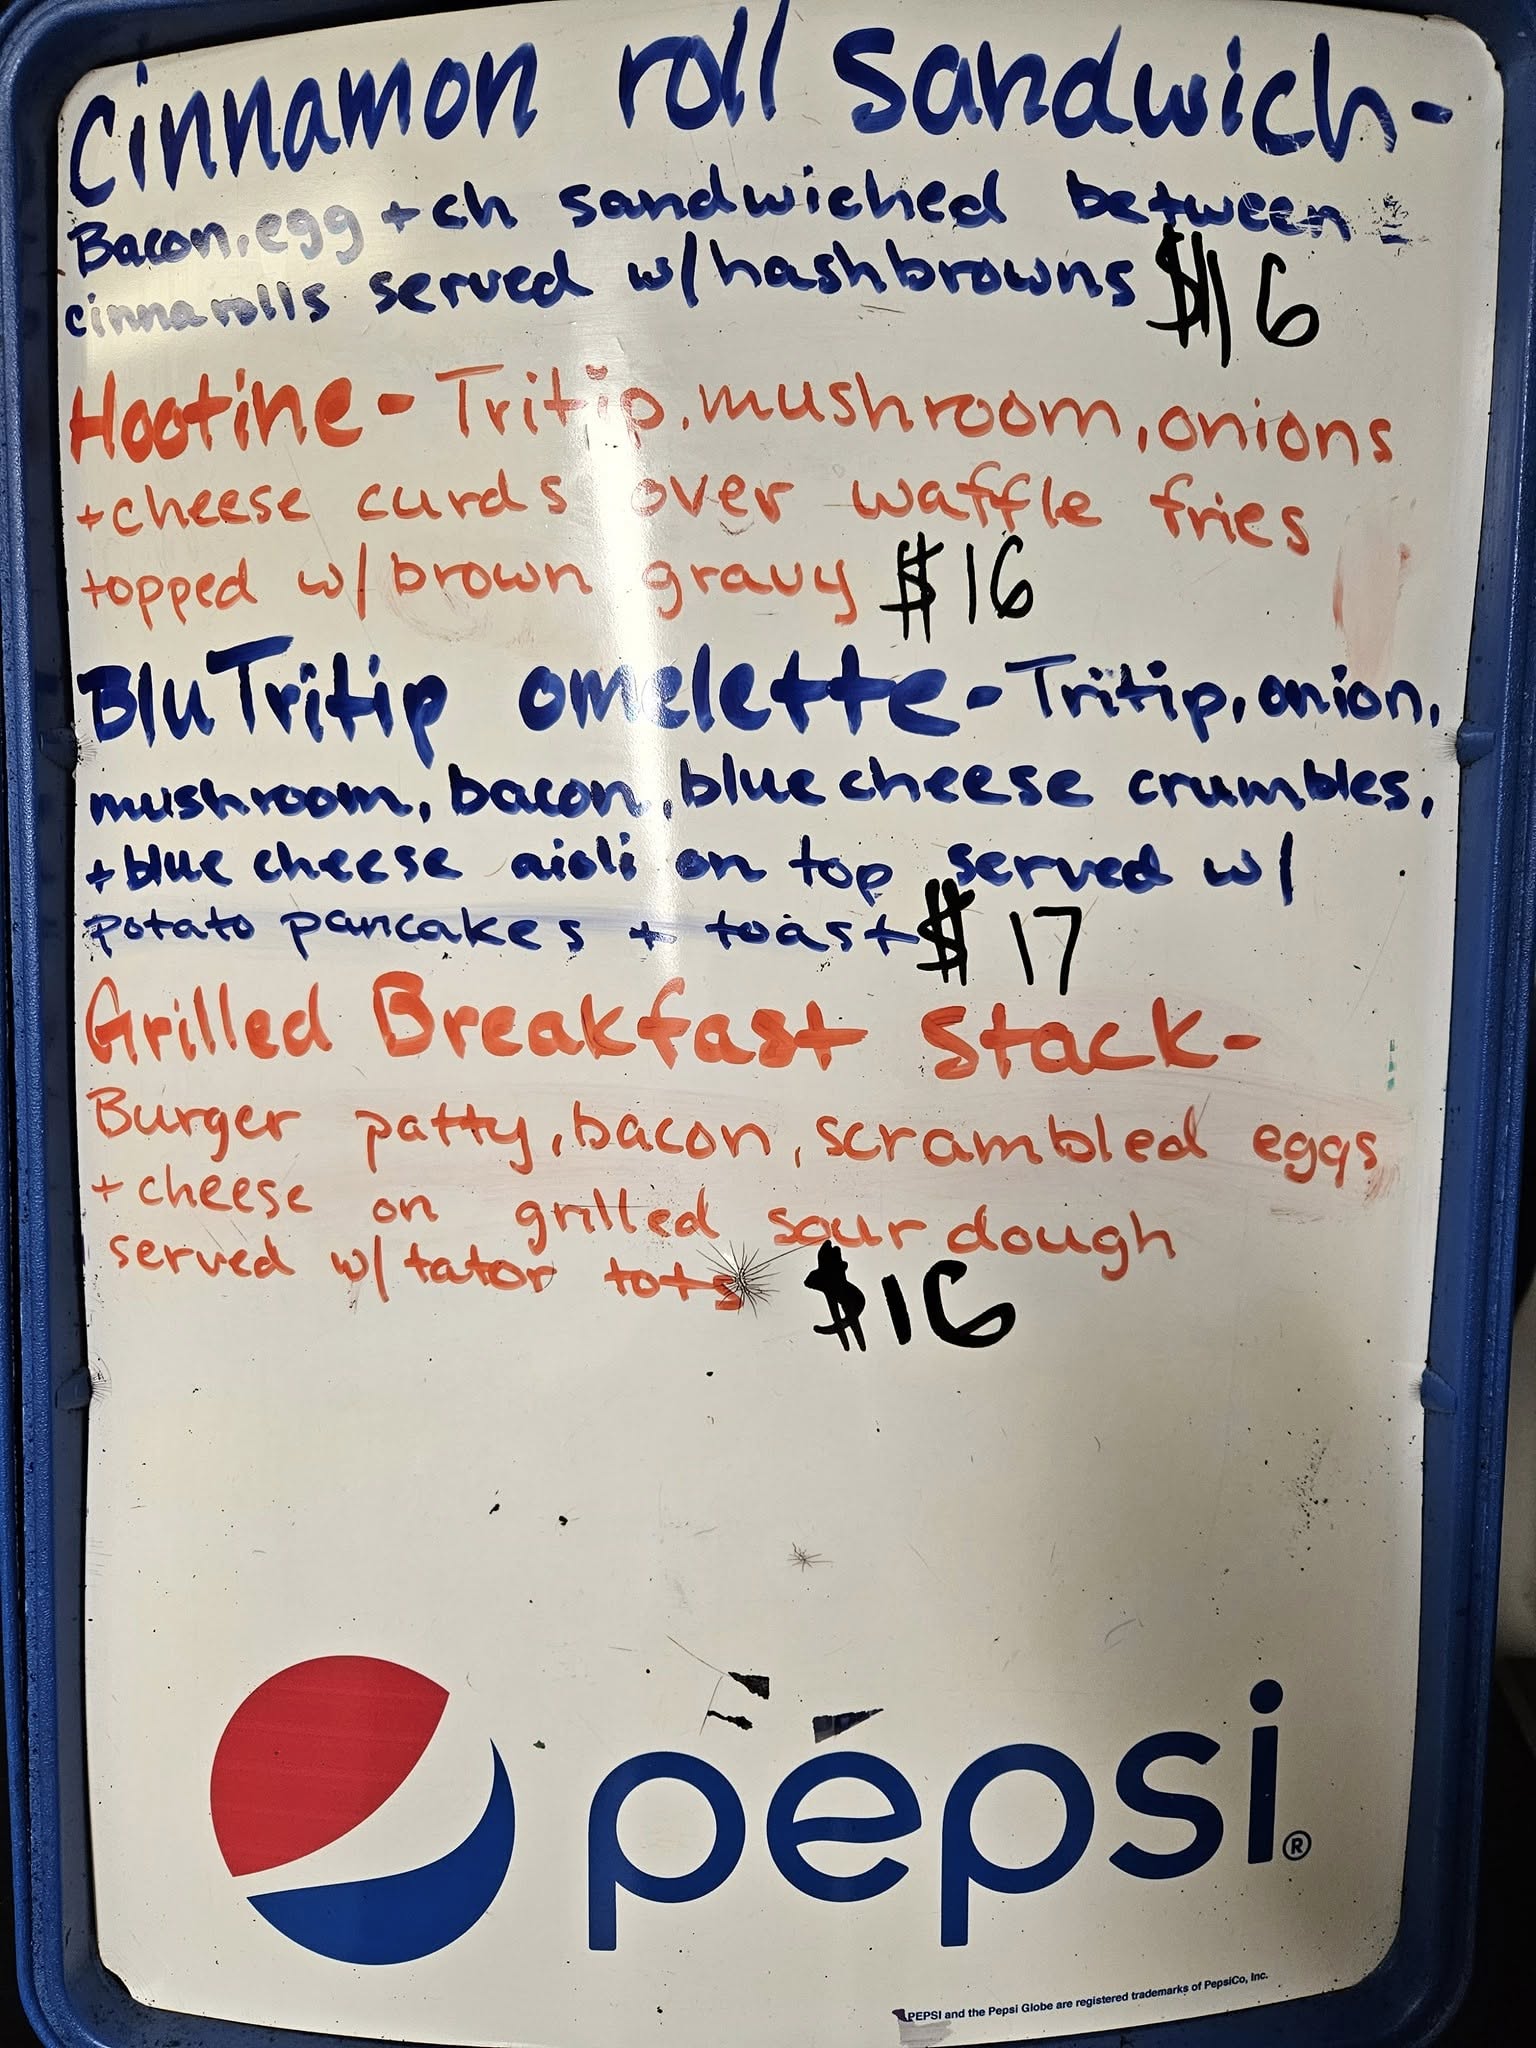 Cinnamon roll Sandwich-
Bacon, egg + ch sandwiched between
cinnarolls served w/hashbrowns $16
Hootine - Tritip, mushroom, onions
+ cheese curds over waffle fries
topped w/ brown gravy $16
Blu Tritip omelette - Tritip, onion,
mushroom, bacon, blue cheese crumbles,
+ blue cheese aioli on top served w/
potato pancakes + toast $17
Grilled Breakfast Stack-
Burger patty, bacon, scrambled eggs
+ cheese on grilled sour dough
served w/ tator tots $16
pepsi®
PEPSI and the Pepsi Globe are registered trademarks of PepsiCo, Inc.